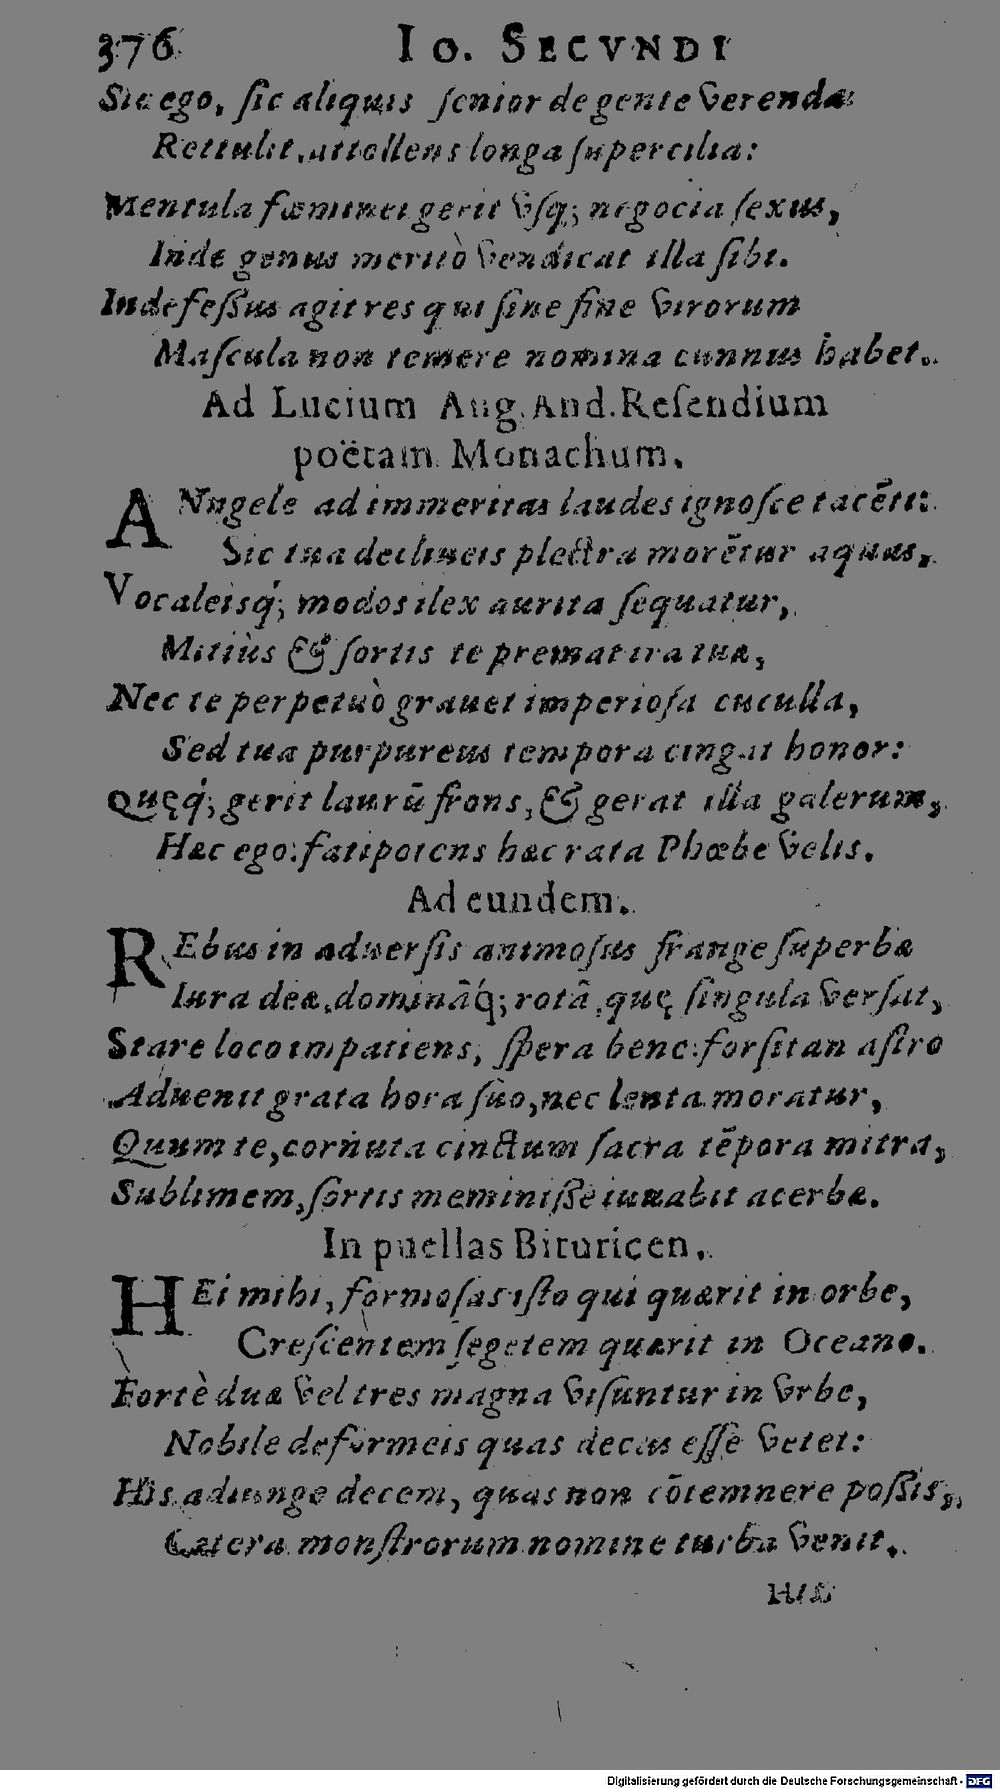 376 IO. SECVNDI
Sic ego, ſic aliquis ſenior de gente verendæ
Rettulit, attollens longa ſupercilia:
Mentula fœminei gerit vſq; negocia ſexus,
Inde genus meritò vendicat illa ſibi.
Indefeſſus agit res qui ſine fine virorum
Maſcula non temere nomina cunnus habet.
Ad Lucium Ang. And. Reſendium
poëtam Monachum.
ANngele ad immeritas laudes ignoſce tacēti:
Sic tua decliueis plectra morētur aquas,
Vocaleisq́; modos ilex aurita ſequatur,
Mitiùs & ſortis te premat ira tuæ,
Nec te perpetuò grauet imperioſa cuculla,
Sed tua purpureus tempora cingat honor:
Quęq́; gerit laurū frons, & gerat illa galerum,
Hæc ego: fatipotens hæc rata Phœbe velis.
Ad eundem.
REbus in aduerſis animoſus frange ſuperbæ
Iura deæ, dominãq́; rotã, quę ſingula verſat,
Stare loco impatiens, ſpera bene: forſitan aſtro
Aduenit grata hora ſuo, nec lenta moratur,
Quum te, cornuta cinctum ſacra tēpora mitra,
Sublimem, ſortis meminiſſe iuuabit acerbæ.
In puellas Bituricen.
HEi mihi, formoſas iſto qui quærit in orbe,
Creſcentem ſegetem quærit in Oceano.
Fortè duæ vel tres magna viſuntur in vrbe,
Nobile deformeis quas decus eſſe vetet:
His adiunge decem, quas non cōtemnere poſſis,
Cætera monſtrorum nomine turba venit.
His
Digitalisierung gefördert durch die Deutsche Forschungsgemeinschaft - DFG